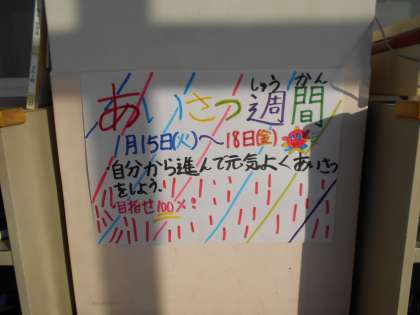 しゅう かん
あいさつ週間
1月15日(火)～18日(金)
・自分から進んで元気よくあいさつ
をしよう。
目指せ100%!